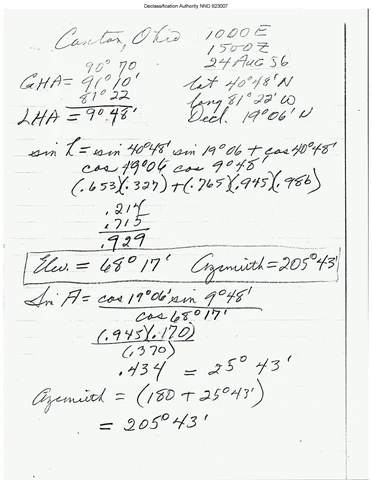 Declassification Authority NND 923007
Canton, Ohio 1000 E
1500 Z
24 AUG 56
90° 70
GHA = 91° 10'
81° 22
LHA = 9° 48'
lat 40° 48' N
long 81° 22' W
Decl. 19° 06' N
sin L = sin 40° 48' sin 19° 06 + cos 40° 48'
cos 19° 06 cos 9° 48'
(.653)(.327) + (.765)(.945)(.986)
.214
.715
.929
Elev. = 68° 17' Azimuth = 205° 43'
Sin A = cos 19° 06' sin 9° 48'
cos 68° 17'
(.945)(.170)
(.370)
.434 = 25° 43'
Azimuth = (180 + 25° 43')
= 205° 43'